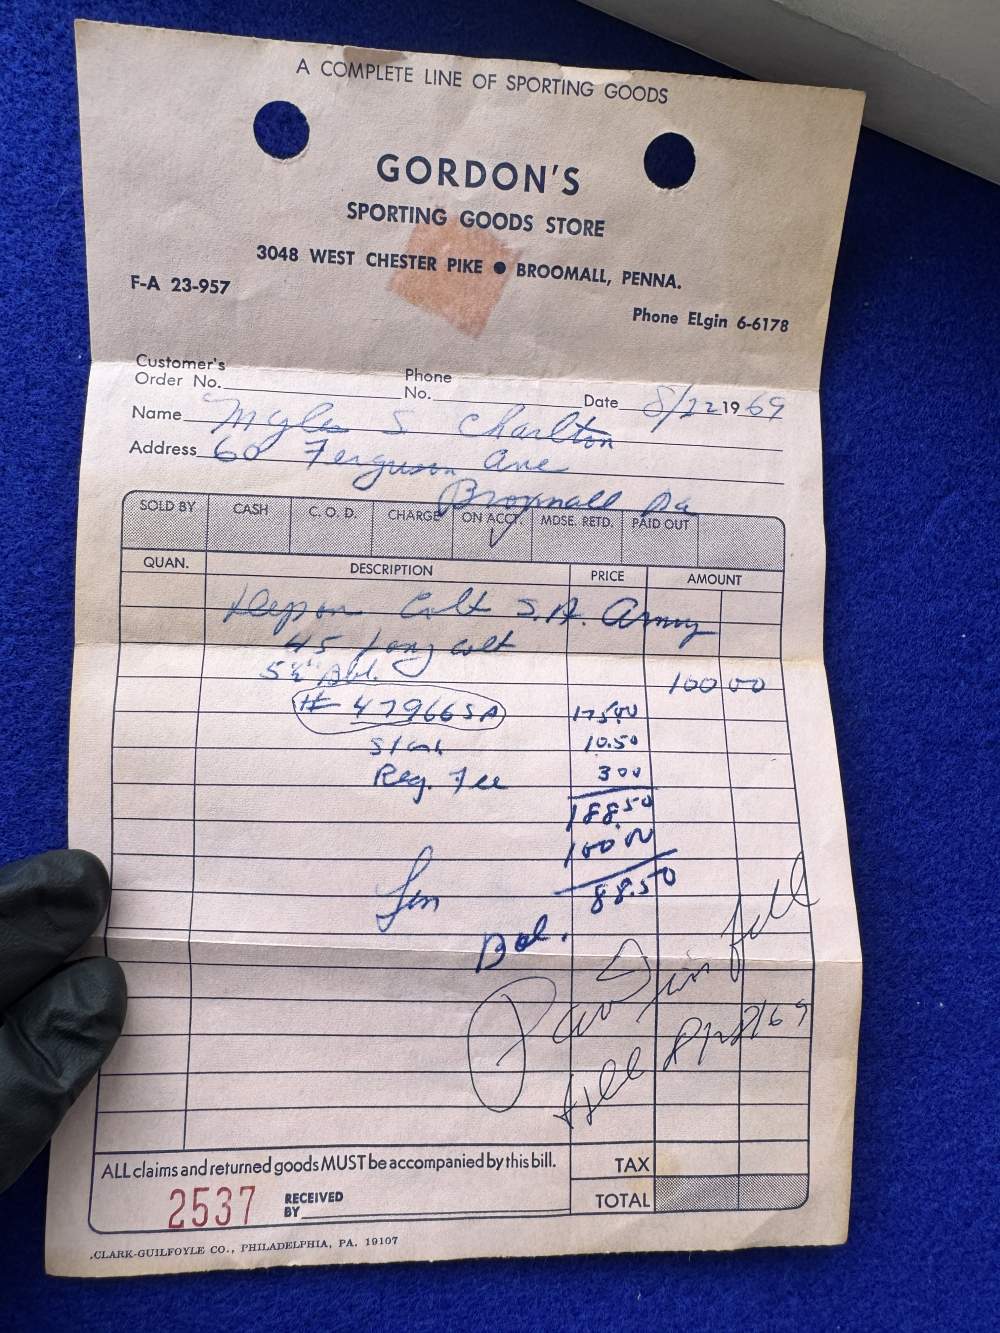 A COMPLETE LINE OF SPORTING GOODS
GORDON'S
SPORTING GOODS STORE
3048 WEST CHESTER PIKE ● BROOMALL, PENNA.
F-A 23-957
Phone ELgin 6-6178
Customer's Order No. Phone No. Date 8/22 1969
Name Myles S Charlton
Address 60 Ferguson Ave
Broomall Pa
SOLD BY CASH C.O.D. CHARGE ON ACCT. MDSE. RETD. PAID OUT
✓
QUAN. DESCRIPTION PRICE AMOUNT
Colt S.A. Army
45 long colt
5½" Bbl. 100 00
# 47966SA 175.00
10.50
Reg. Fee 3 00
188.50
100 00
88.50
Bal.
Paid in full
69
ALL claims and returned goods MUST be accompanied by this bill.
TAX
2537 RECEIVED BY
TOTAL
CLARK-GUILFOYLE CO., PHILADELPHIA, PA. 19107